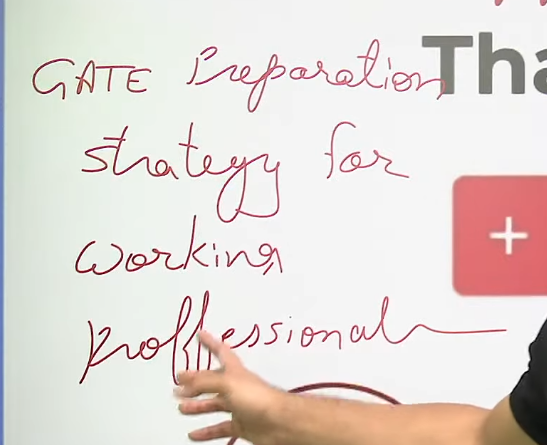 GATE Preparation
Tha
strategy for
+
working
proffessional